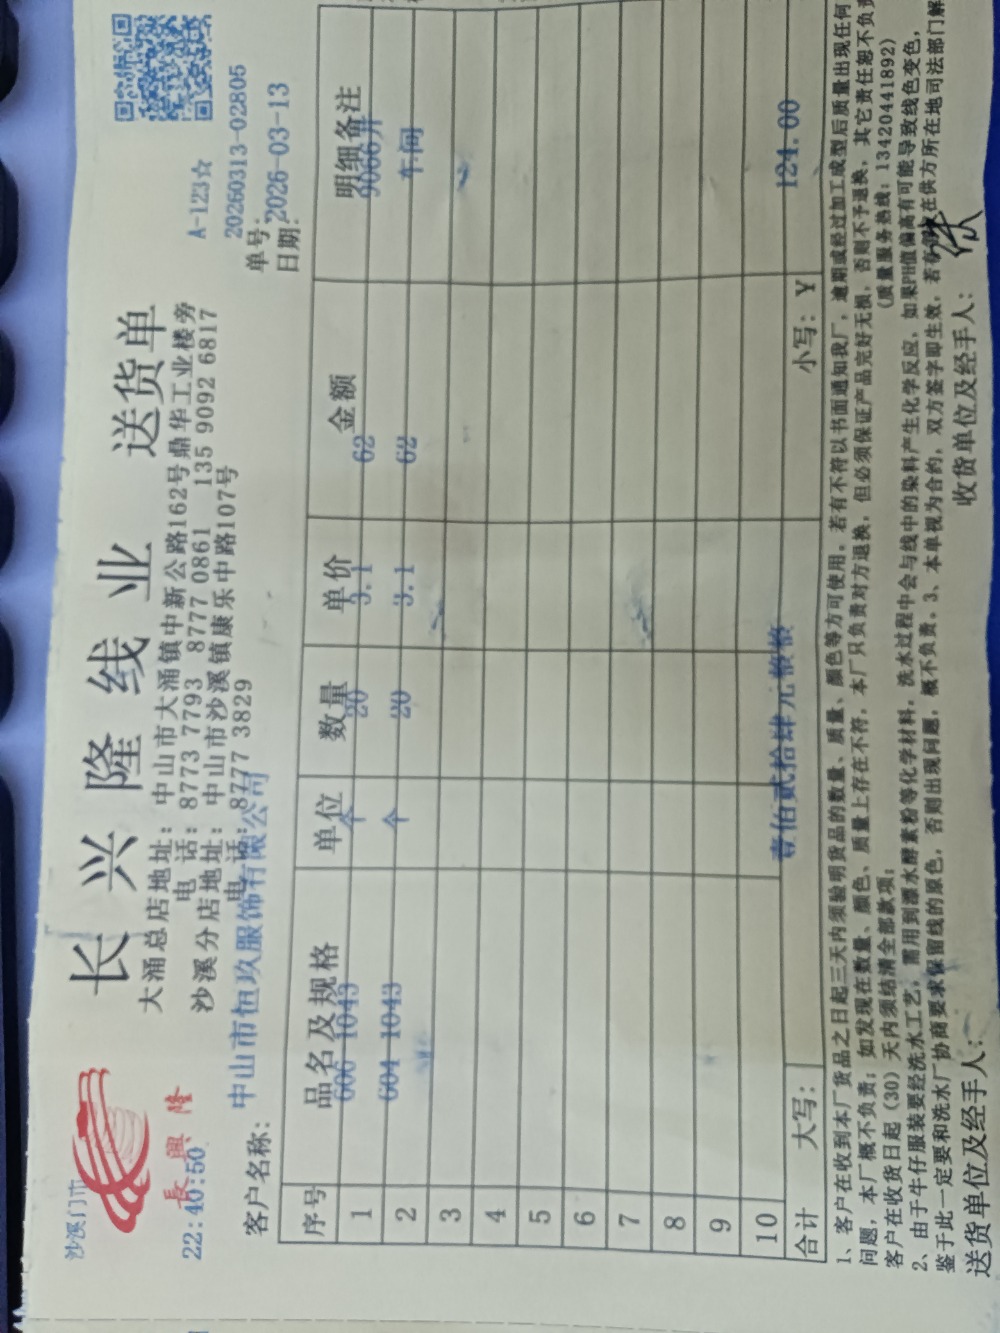 长兴隆线业 送货单
沙溪门市
長興隆
22:40:50
大涌总店地址：中山市大涌镇中新公路162号鼎华工业楼旁
电 话：8773 7793 8777 0861 135 9092 6817
沙溪分店地址：中山市沙溪镇康乐中路107号
电 话：8777 3829
A-123☆
单号：20260313-02805
日期：2026-03-13
客户名称：中山市恒玖服饰有限公司
序号 品名及规格 单位 数量 单价 金额 明细备注
1 606 1043 个 20 3.1 62 9066开
2 604 1043 个 20 3.1 62 车间
3
4
5
6
7
8
9
10
合计 大写：壹佰贰拾肆元 小写：¥ 124.00
1、客户在收到本厂货品之日起三天内须验明货品的数量、质量、颜色等方可使用。若有不符以书面通知我厂，逾期或经过加工成型后质量出现任何
问题，本厂概不负责；如发现在数量、颜色、质量上存在不符，本厂只负责对方退换，但必须保证产品完好无损，否则不予退换，其它责任恕不负责
客户在收货日起（30）天内须结清全部款项；（质量服务热线：13420441892）
2、由于牛仔服装要经洗水工艺，需用到漂水酵素粉等化学材料，洗水过程中会与线中的染料产生化学反应，如果PH值偏高有可能导致线色变色，
鉴于此一定要和洗水厂协商要求保留线的原色，否则出现问题，概不负责。3、本单视为合约，双方签字即生效，若有 在供方所在地司法部门解
送货单位及经手人： 收货单位及经手人：